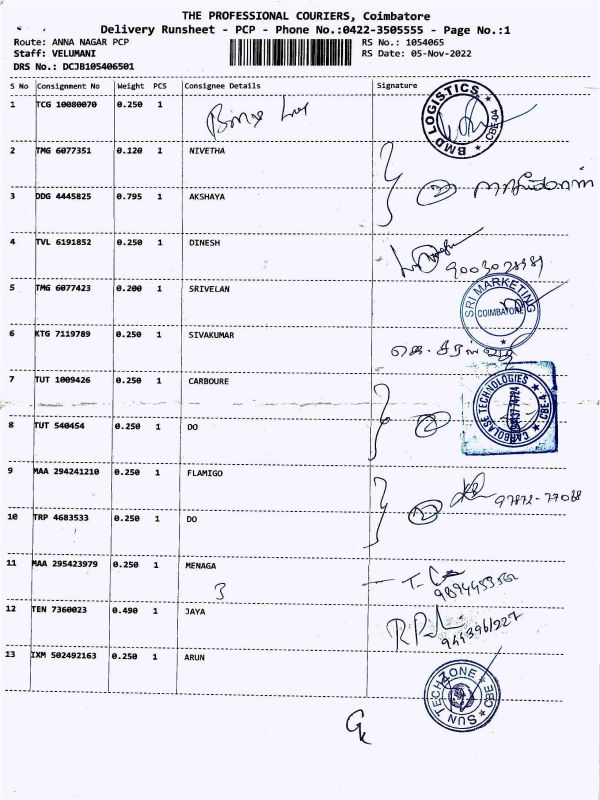 THE PROFESSIONAL COURIERS, Coimbatore
Delivery Runsheet - PCP - Phone No.:0422-3505555 - Page No.:1
Route: ANNA NAGAR PCP RS No.: 1054065
Staff: VELUMANI RS Date: 05-Nov-2022
DRS No.: DCJB105406501
S No Consignment No Weight PCS Consignee Details Signature
1 TCG 10080070 0.250 1 BMD LOGISTICS ★ CBE-04 ★
2 TMG 6077351 0.120 1 NIVETHA
3 DDG 4445825 0.795 1 AKSHAYA
4 TVL 6191852 0.250 1 DINESH
5 TMG 6077423 0.200 1 SRIVELAN SRI MARKETING ★ COIMBATORE
6 KTG 7119789 0.250 1 SIVAKUMAR
7 TUT 1009426 0.250 1 CARBOURE CARBOLASE TECHNOLOGIES ★ CBE-4 ★
8 TUT 540454 0.250 1 DO
9 MAA 294241210 0.250 1 FLAMIGO
10 TRP 4683533 0.250 1 DO
11 MAA 295423979 0.250 1 MENAGA
3
12 TEN 7360023 0.490 1 JAYA
13 IXM 502492163 0.250 1 ARUN SUN TECHZONE ★ CBE ★